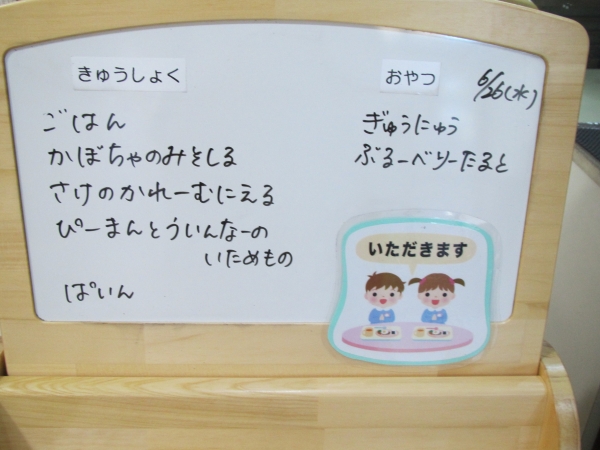 きゅうしょく
ごはん
かぼちゃのみそしる
さけのかれーむにえる
ぴーまんとういんなーの
いためもの
ぱいん
おやつ
6/26(水)
ぎゅうにゅう
ぶるーべりーたると
いただきます